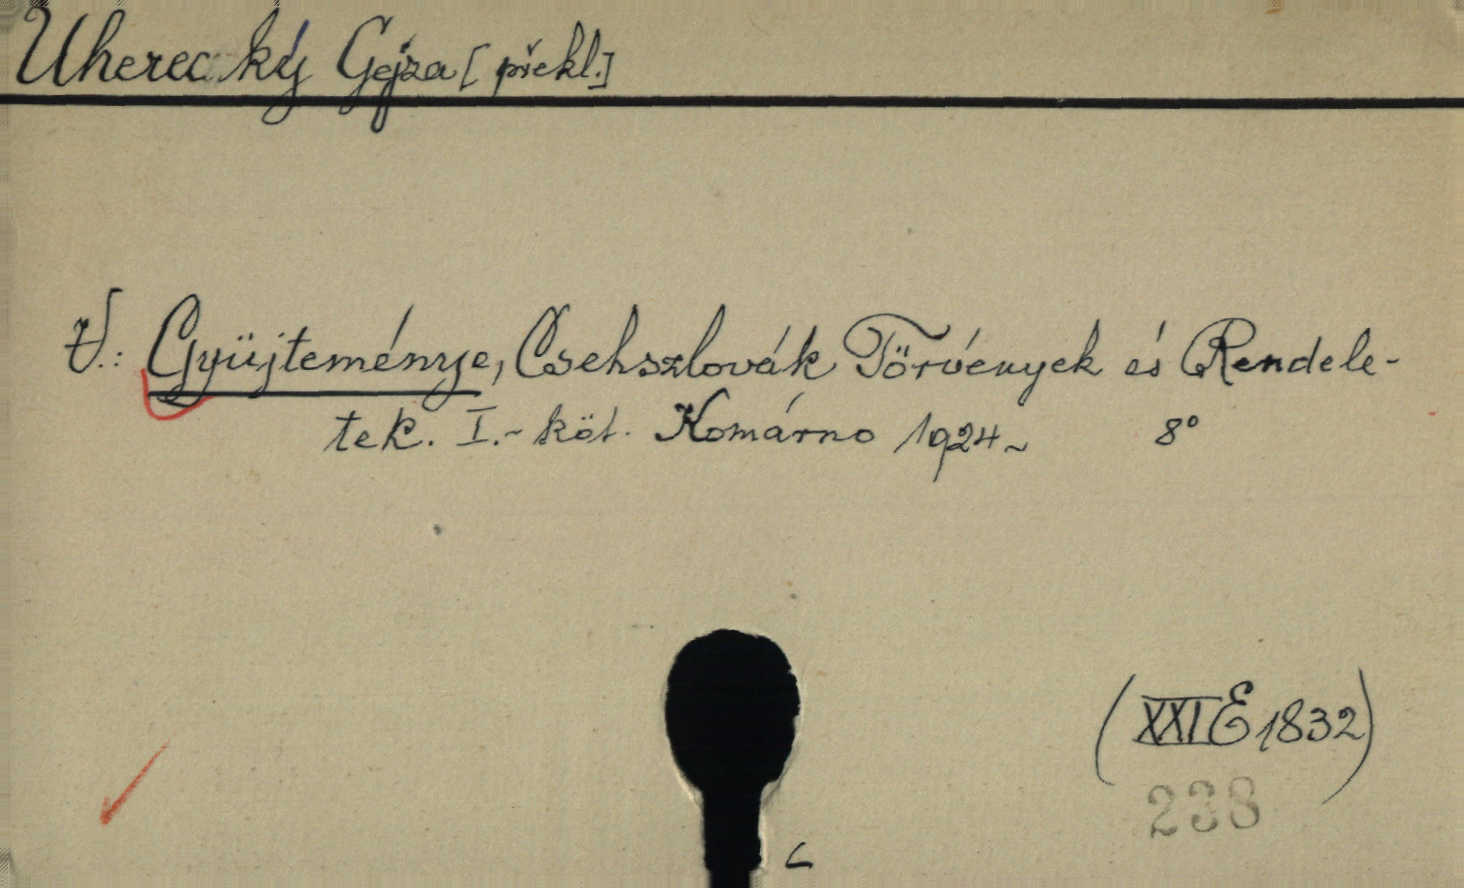 Uherecký Gejza [překl.]
V.: Gyüjteménye, Csehszlovák Törvények és Rendele-
tek. I.- köt. Komárno 1924- 8°
(XXI E 1832)
238